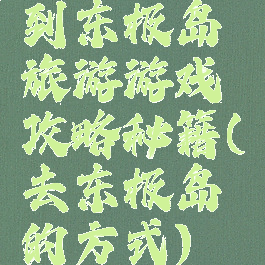 到东极岛
旅游游戏
攻略秘籍(
去东极岛
的方式)